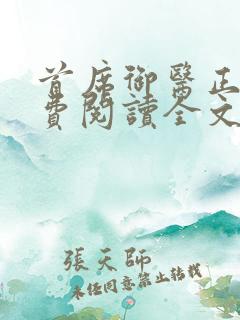 首席御醫正
費閱讀全文
張天師
未經同意禁止轉載